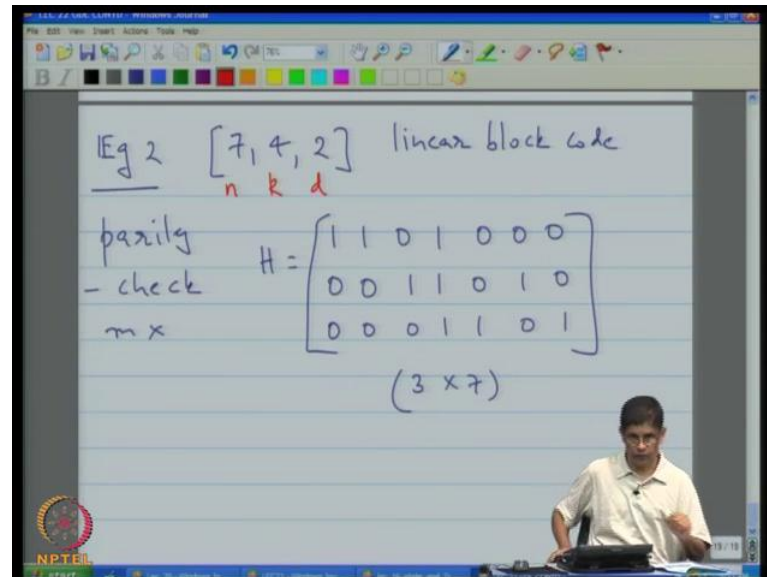 File Edit View Insert Actions Tools Help
Eg 2 [7, 4, 2] linear block code
n k d
parity H = [1 1 0 1 0 0 0]
- check [0 0 1 1 0 1 0]
mx [0 0 0 1 1 0 1]
(3 x 7)
NPTEL